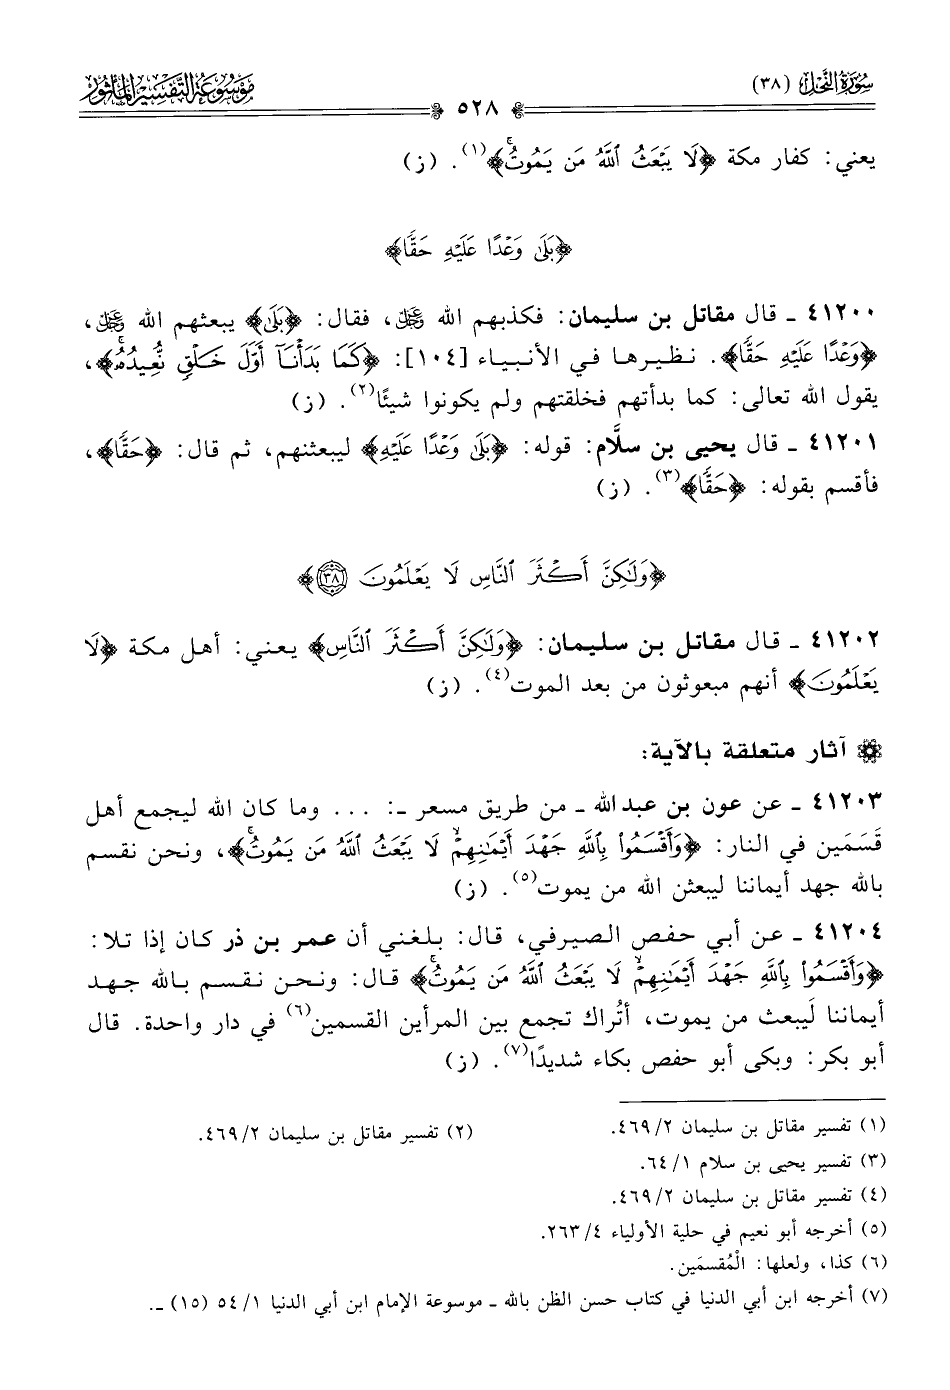 سُورَةُ النَّحْل (٣٨)
٥٢٨
مَوْسُوعَة التَّفْسِير المَأْثُور
يعني: كفار مكة ﴿لَا يَبْعَثُ ٱللَّهُ مَن يَمُوتُۚ﴾(١). (ز)
﴿بَلَىٰ وَعْدًا عَلَيْهِ حَقًّا﴾
٤١٢٠٠ ـ قال مقاتل بن سليمان: فكذبهم الله ﷿، فقال: ﴿بَلَىٰ﴾ يبعثهم الله ﷿،
﴿وَعْدًا عَلَيْهِ حَقًّا﴾. نظيرها في الأنبياء [١٠٤]: ﴿كَمَا بَدَأْنَآ أَوَّلَ خَلْقٍ نُّعِيدُهُۥۚ﴾،
يقول الله تعالى: كما بدأتهم فخلقتهم ولم يكونوا شيئًا(٢). (ز)
٤١٢٠١ ـ قال يحيى بن سلَّام: قوله: ﴿بَلَىٰ وَعْدًا عَلَيْهِ﴾ ليبعثنهم، ثم قال: ﴿حَقًّا﴾،
فأقسم بقوله: ﴿حَقًّا﴾(٣). (ز)
﴿وَلَٰكِنَّ أَكْثَرَ ٱلنَّاسِ لَا يَعْلَمُونَ ٣٨﴾
٤١٢٠٢ ـ قال مقاتل بن سليمان: ﴿وَلَٰكِنَّ أَكْثَرَ ٱلنَّاسِ﴾ يعني: أهل مكة ﴿لَا
يَعْلَمُونَ﴾ أنهم مبعوثون من بعد الموت(٤). (ز)
آثار متعلقة بالآية:
٤١٢٠٣ ـ عن عون بن عبد الله ـ من طريق مسعر ـ: ... وما كان الله ليجمع أهل
قَسَمَين في النار: ﴿وَأَقْسَمُوا۟ بِٱللَّهِ جَهْدَ أَيْمَٰنِهِمْۙ لَا يَبْعَثُ ٱللَّهُ مَن يَمُوتُۚ﴾، ونحن نقسم
بالله جهد أيماننا ليبعثن الله من يموت(٥). (ز)
٤١٢٠٤ ـ عن أبي حفص الصيرفي، قال: بلغني أن عمر بن ذر كان إذا تلا:
﴿وَأَقْسَمُوا۟ بِٱللَّهِ جَهْدَ أَيْمَٰنِهِمْۙ لَا يَبْعَثُ ٱللَّهُ مَن يَمُوتُۚ﴾ قال: ونحن نقسم بالله جهد
أيماننا لَيبعث من يموت، أتُراك تجمع بين المرأين القسمين(٦) في دار واحدة. قال
أبو بكر: وبكى أبو حفص بكاء شديدًا(٧). (ز)
(١) تفسير مقاتل بن سليمان ٤٦٩/٢. (٢) تفسير مقاتل بن سليمان ٤٦٩/٢.
(٣) تفسير يحيى بن سلام ٦٤/١.
(٤) تفسير مقاتل بن سليمان ٤٦٩/٢.
(٥) أخرجه أبو نعيم في حلية الأولياء ٢٦٣/٤.
(٦) كذا، ولعلها: الْمُقسمَين.
(٧) أخرجه ابن أبي الدنيا في كتاب حسن الظن بالله ـ موسوعة الإمام ابن أبي الدنيا ٥٤/١ (١٥) ـ.